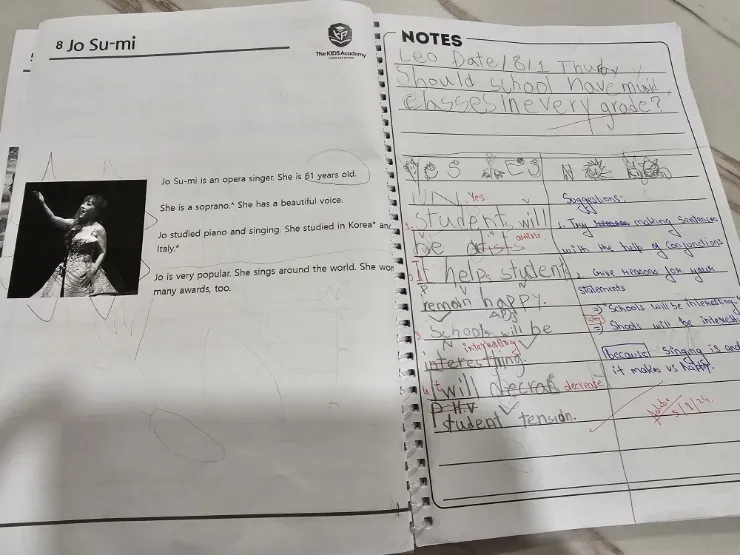 8 Jo Su-mi
The KIDS Academy
Jo Su-mi is an opera singer. She is 61 years old.
She is a soprano.* She has a beautiful voice.
Jo studied piano and singing. She studied in Korea* and
Italy.*
Jo is very popular. She sings around the world. She won
many awards, too.
NOTES
Leo Date/8/1
Should school have music
classes in every grade?
Yes
Yes.
students will
be
artists
It helps student
remain happy.
Schools will be
interesting
interesthing.
It will decrease
decrease
P H.V
student tension.
Suggestions:
1. Try making sentences
with the help of conjunctions
2. Give reasons for your
statements
⇒ "Schools will be interesting"
⇒ Schools will be interesti
because singing is
it makes us happy.